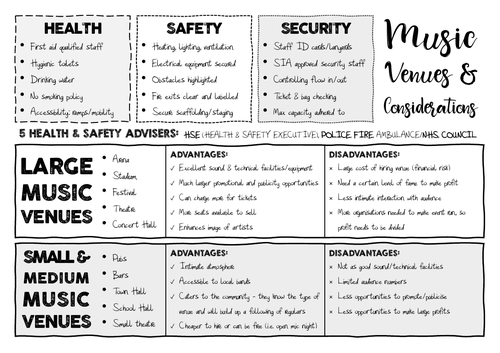 HEALTH
First aid qualified staff
Hygienic toilets
Drinking water
No smoking policy
Accessibility: ramps/mobility
SAFETY
Heating, lighting, ventilation
Electrical equipment secured
Obstacles highlighted
Fire exits clear and labelled
Secure scaffolding/staging
SECURITY
Staff ID cards/lanyards
SIA approved security staff
Controlling flow in/out
Ticket & bag checking
Max capacity adhered to
Music
Venues &
Considerations
5 HEALTH & SAFETY ADVISERS: HSE (HEALTH & SAFETY EXECUTIVE), POLICE FIRE AMBULANCE/NHS COUNCIL
LARGE
MUSIC
VENUES
Arena
Stadium
Festival
Theatre
Concert Hall
ADVANTAGES:
Excellent sound & technical facilities/equipment
Much larger promotional and publicity opportunities
Can charge more for tickets
More seats available to sell
Enhances image of artists
DISADVANTAGES:
Large cost of hiring venue (financial risk)
Need a certain level of fame to make profit
Less intimate interaction with audience
More organisations needed to make event run, so
profit needs to be divided
SMALL &
MEDIUM
MUSIC
VENUES
Pubs
Bars
Town Hall
School Hall
Small theatre
ADVANTAGES:
Intimate atmosphere
Accessible to local bands
Caters to the community - they know the type of
venue and will build up a following of regulars
Cheaper to hire or can be free (i.e. open mic night)
DISADVANTAGES:
Not as good sound/technical facilities
Limited audience numbers
Less opportunities to promote/publicise
Less opportunities to make large profits